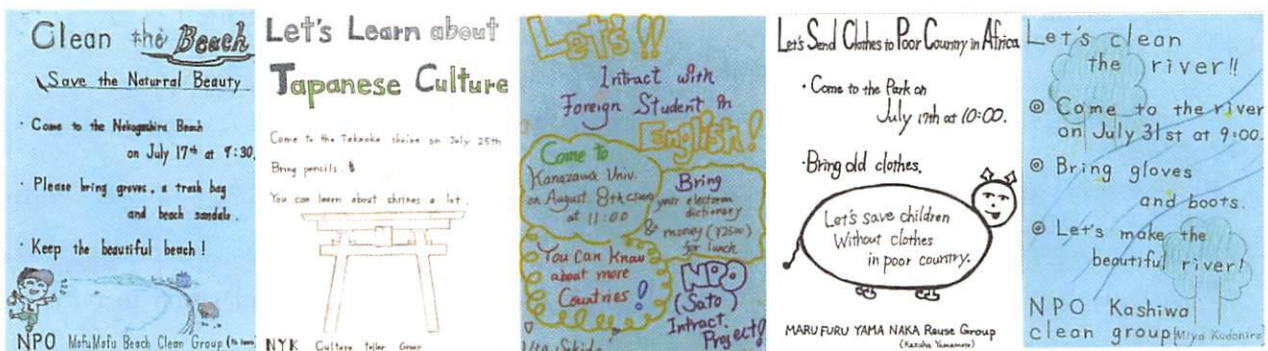 Clean the Beach
Save the Naturral Beauty
・Come to the Nekogashira Beach
on July 17th at 9:30.
・Please bring groves, a trash bag
and beach sandals.
・Keep the beautiful beach!
NPO MofuMofu Beach Clean Group
Let's Learn about
Japanese Culture
Come to the Takaoka shrine on July 25th
Bring pencils.
You can learn about shrines a lot.
NYK Culture Group
Let's!!
Intract with
Foreign Student in
English!
Come to
Kanazawa Univ.
on August 8th
at 11:00
Bring
your
dictionary
& money (¥2500)
for lunch
You Can Know
about more
Countries!
NPO
(Sato)
Intract
Project!
Let's Send Clothes to Poor Country in Africa
・Come to the Park on
July 17th at 10:00.
・Bring old clothes.
Let's save children
Without clothes
in poor country.
MARU FURU YAMA NAKA Reuse Group
(Kazuha Yamamoto)
Let's clean
the river!!
◎ Come to the river
on July 31st at 9:00.
◎ Bring gloves
and boots.
◎ Let's make the
beautiful river!
NPO Kashiwa
clean group (Miya Kadohira)